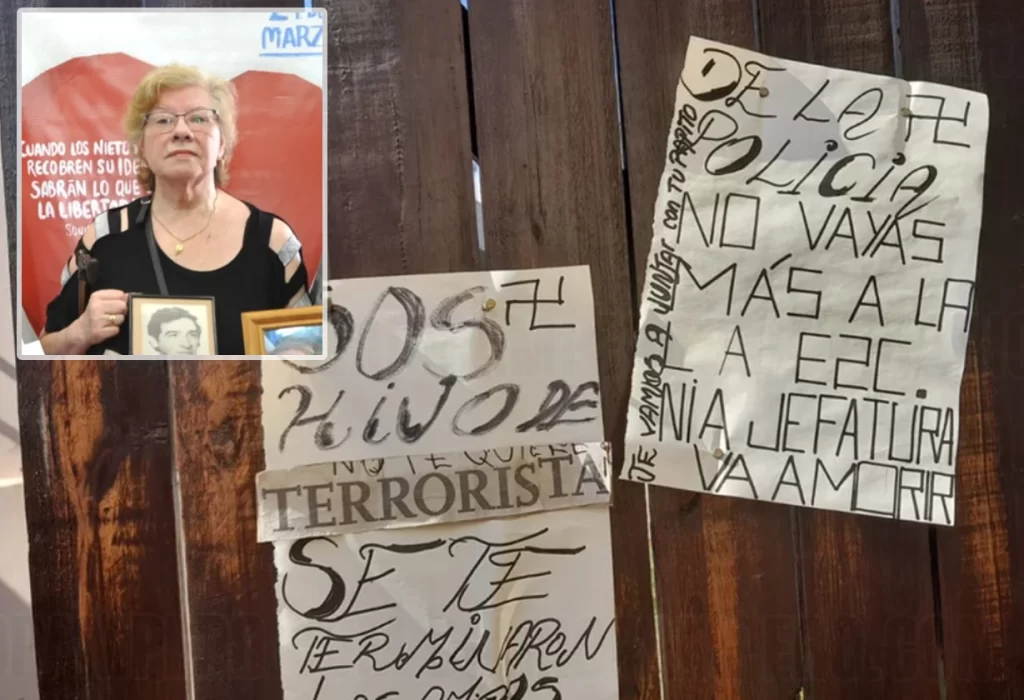 MARZ
CUANDO LOS NIETO
RECOBREN SU IDE
SABRÁN LO QUE
LA LIBERTA
SOS
HIJO DE
NO TE QUIERE
TERRORISTA
SE TE
TERMINARON
LOS AMIGOS
DE LA
POLICIA
NO VAYAS
MÁS A LA
A EZC.
NI A JEFATURA
VA A MORIR
TE VAMOS A JUNTAR CON TU PADRE